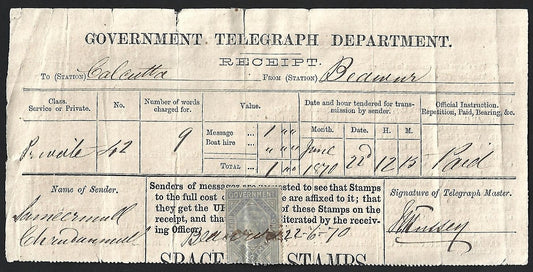 GOVERNMENT TELEGRAPH DEPARTMENT.
RECEIPT.
To (Station) Calcutta From (Station) Beawur
Class. Service or Private. No. Number of words charged for. Value. Date and hour tendered for transmission by sender. Official Instruction. Repetition, Paid, Bearing, &c.
Message ... 1 " " Month. Date. H. M.
Private 42 9 Boat hire ... " " " June 22d 12 15 Paid
Total ... 1 " " 1870
Name of Sender.
Senders of messages are requested to see that Stamps
to the full cost are affixed to it; that
they get the of these Stamps on the
receipt, and that by the receiv-
ing Officer.
Signature of Telegraph Master.
Beawur 22-6-70
SPACE STAMPS